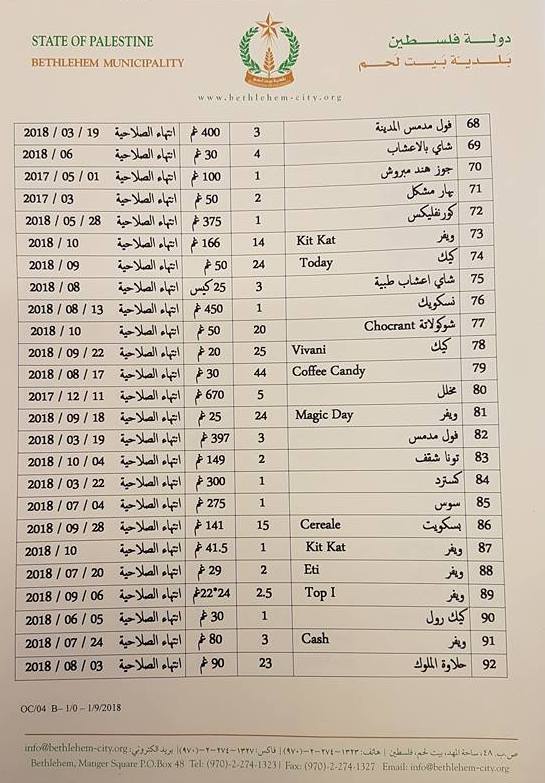 STATE OF PALESTINE
BETHLEHEM MUNICIPALITY
دولة فلسطين
بلدية بيت لحم
www.bethlehem-city.org
68 فول مدمس المدينة 3 400 غم انتهاء الصلاحية 2018 / 03 / 19
69 شاي بالاعشاب 4 30 غم انتهاء الصلاحية 2018 / 06
70 جوز هند مبروش 1 100 غم انتهاء الصلاحية 2017 / 05 / 01
71 بهار مشكل 2 50 غم انتهاء الصلاحية 2017 / 03
72 كورنفليكس 1 375 غم انتهاء الصلاحية 2018 / 05 / 28
73 ويفر Kit Kat 14 166 غم انتهاء الصلاحية 2018 / 10
74 كيك Today 24 50 غم انتهاء الصلاحية 2018 / 09
75 شاي اعشاب طبية 3 25 كيس انتهاء الصلاحية 2018 / 08
76 نسكويك 1 450 غم انتهاء الصلاحية 2018 / 08 / 13
77 شوكولاتة Chocrant 20 50 غم انتهاء الصلاحية 2018 / 10
78 كيك Vivani 25 20 غم انتهاء الصلاحية 2018 / 09 / 22
79 Coffee Candy 44 30 غم انتهاء الصلاحية 2018 / 08 / 17
80 مخلل 5 670 غم انتهاء الصلاحية 2017 / 12 / 11
81 ويفر Magic Day 24 25 غم انتهاء الصلاحية 2018 / 09 / 18
82 فول مدمس 3 397 غم انتهاء الصلاحية 2018 / 03 / 19
83 تونا شقف 2 149 غم انتهاء الصلاحية 2018 / 10 / 04
84 كسترد 1 300 غم انتهاء الصلاحية 2018 / 03 / 22
85 سوس 1 275 غم انتهاء الصلاحية 2018 / 07 / 04
86 بسكويت Cereale 15 141 غم انتهاء الصلاحية 2018 / 09 / 28
87 ويفر Kit Kat 1 41.5 غم انتهاء الصلاحية 2018 / 10
88 ويفر Eti 2 29 غم انتهاء الصلاحية 2018 / 07 / 20
89 ويفر Top I 2.5 24*22غم انتهاء الصلاحية 2018 / 09 / 06
90 كيك رول 1 30 غم انتهاء الصلاحية 2018 / 06 / 05
91 ويفر Cash 3 80 غم انتهاء الصلاحية 2018 / 07 / 24
92 حلاوة الملوك 23 90 غم انتهاء الصلاحية 2018 / 08 / 03
OC/04 B- 1/0 - 1/9/2018
ص.ب. ٤٨، ساحة المهد، بيت لحم، فلسطين | هاتف: ١٣٢٣-٢٧٤-٢-(٩٧٠) | فاكس: ١٣٢٧-٢٧٤-٢-(٩٧٠) | بريد الكتروني: info@bethlehem-city.org
Bethlehem, Manger Square P.O.Box 48 Tel: (970)-2-274-1323 | Fax: (970)-2-274-1327 Email: info@bethlehem-city.org